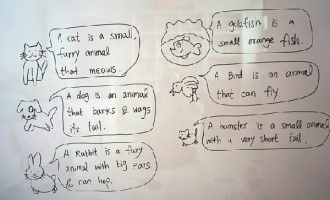 A cat is a small,
furry animal
that meows.
A dog is an animal
that barks & wags
its tail.
A Rabbit is a fury
animal with big ears
& can hop.
A goldfish is a
small orange fish.
A Bird is an animal
that can fly.
A hamster is a small animal
with a very short tail.